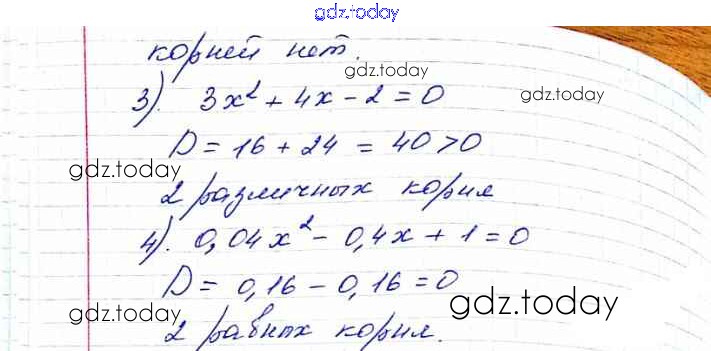 gdz.today
корней нет.
gdz.today
3). 3x² + 4x - 2 = 0
gdz.today
D = 16 + 24 = 40 > 0
gdz.today
2 различных корня
4). 0,04x² - 0,4x + 1 = 0
D = 0,16 - 0,16 = 0
gdz.today
gdz.today
2 равных корня.